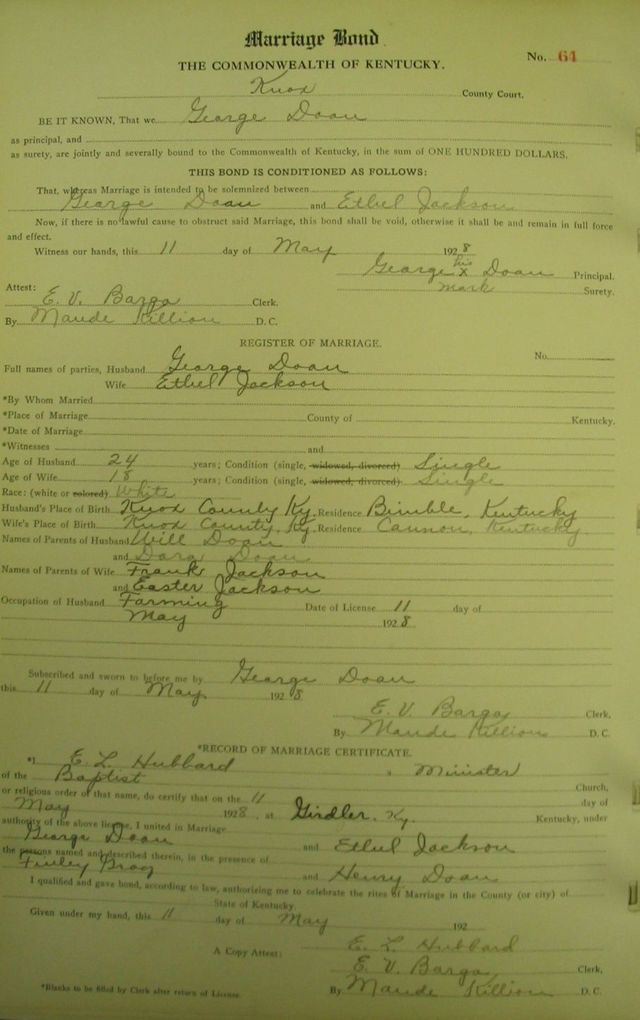 Marriage Bond
No. 64
THE COMMONWEALTH OF KENTUCKY.
Knox County Court.
BE IT KNOWN, That we George Doan
as principal, and
as surety, are jointly and severally bound to the Commonwealth of Kentucky, in the sum of ONE HUNDRED DOLLARS.
THIS BOND IS CONDITIONED AS FOLLOWS:
That, whereas Marriage is intended to be solemnized between
George Doan and Ethel Jackson
Now, if there is no lawful cause to obstruct said Marriage, this bond shall be void, otherwise it shall be and remain in full force
and effect.
Witness our hands, this 11 day of May 1928
his
George X Doan Principal.
mark Surety.
Attest:
E. V. Barga Clerk.
By Maude Killion D. C.
REGISTER OF MARRIAGE.
No.
Full names of parties, Husband George Doan
Wife Ethel Jackson
*By Whom Married
*Place of Marriage County of Kentucky.
*Date of Marriage
*Witnesses and
Age of Husband 24 years; Condition (single, widowed, divorced) Single
Age of Wife 18 years; Condition (single, widowed, divorced) Single
Race: (white or colored) White
Husband's Place of Birth Knox County Ky. Residence Bimble, Kentucky
Wife's Place of Birth Knox County, Ky. Residence Cannon, Kentucky
Names of Parents of Husband Will Doan
and Dara Doan
Names of Parents of Wife Frank Jackson
and Easter Jackson
Occupation of Husband Farming Date of License 11 day of
May 1928
Subscribed and sworn to before me by George Doan
this 11 day of May 1928
E. V. Barga Clerk,
By Maude Killion D. C.
*RECORD OF MARRIAGE CERTIFICATE.
*I E. L. Hubbard a Minister
of the Baptist Church,
or religious order of that name, do certify that on the 11 day of
May 1928, at Girdler, Ky. Kentucky, under
authority of the above license, I united in Marriage
George Doan and Ethel Jackson
the persons named and described therein, in the presence of
Finley Bray and Henry Doan
I qualified and gave bond, according to law, authorizing me to celebrate the rites of Marriage in the County (or city) of
State of Kentucky.
Given under my hand, this 11 day of May 192
E. L. Hubbard
A Copy Attest: E. V. Barga Clerk,
*Blanks to be filled by Clerk after return of License. By Maude Killion D. C.